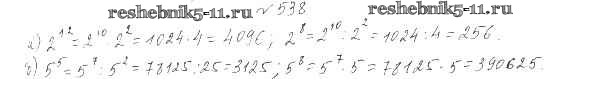 reshebnik5-11.ru № 538 reshebnik5-11.ru
а) 2^12 = 2^10 · 2^2 = 1024 · 4 = 4096; 2^8 = 2^10 : 2^2 = 1024 : 4 = 256.
б) 5^5 = 5^7 : 5^2 = 78125 : 25 = 3125; 5^8 = 5^7 · 5 = 78125 · 5 = 390625.